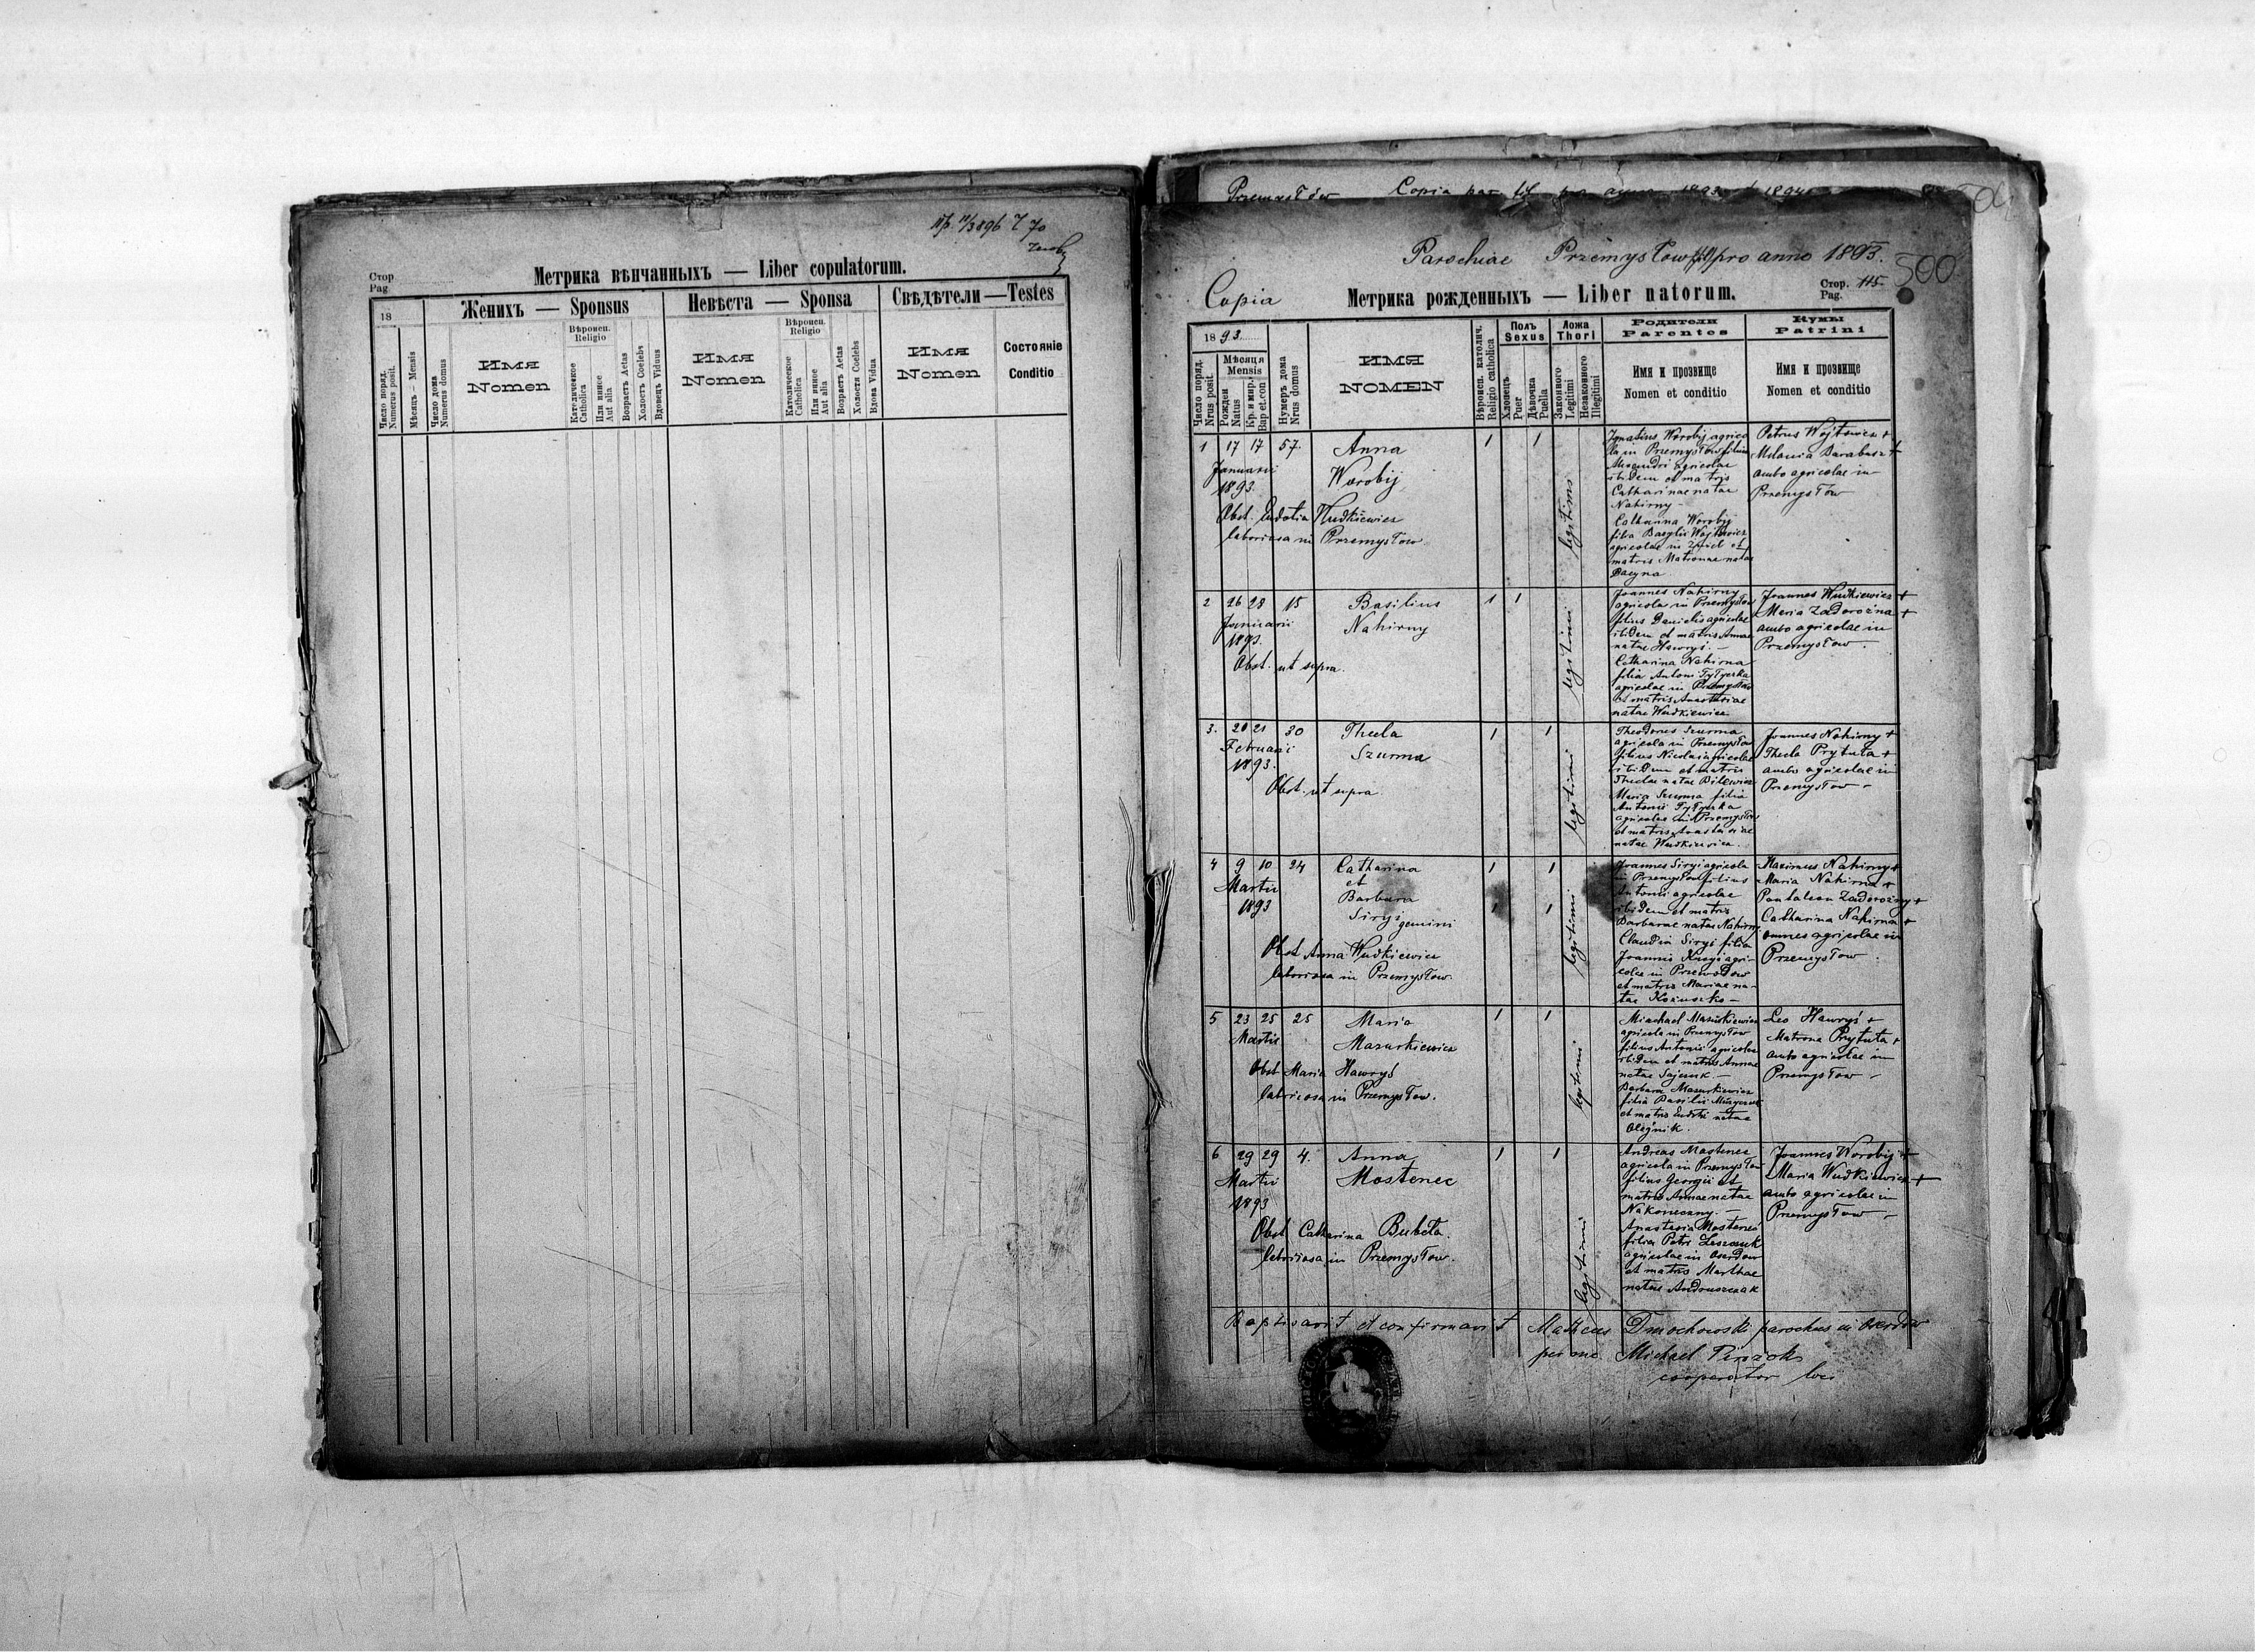 Стор.
Pag.
Метрика вѣнчанныхъ — Liber copulatorum.
18
Женихъ — Sponsus
Невѣста — Sponsa
Свѣдѣтели — Testes
Число поряд.
Numerus posit.
Мѣсяць — Mensis
Число дома
Numerus domus
ИМЯ
Nomen
Вѣроисп.
Religio
Католическое
Catholica
Или инное
Aut alia
Возрастъ Aetas
Холостъ Coelebs
Вдовецъ Viduus
ИМЯ
Nomen
Вѣроисп.
Religio
Католическое
Catholica
Или инное
Aut alia
Возрастъ Aetas
Холоста Coelebs
Вдова Vidua
ИМЯ
Nomen
Состояніе
Conditio
Przemysłów Copia
Parochiae Przemysłow pro anno 1893.
500
Copia
Метрика рожденныхъ — Liber natorum.
Стор. 115.
Pag.
1893.
Число поряд.
Nrus posit.
Мѣсяця
Mensis
Рожден
Natus
Кр. и мир.
Bap et.con
Нумеръ дома
Nrus domus
ИМЯ
NOMEN
Вѣроисп. католич.
Religio catholica
Полъ
Sexus
Хлопецъ
Puer
Дѣвочка
Puella
Ложа
Thori
Законного
Legitimi
Незаконного
Illegitimi
Родители
Parentes
Имя и прозвище
Nomen et conditio
Кумы
Patrini
Имя и прозвище
Nomen et conditio
1 17 17 57. Anna 1 1
Januarii Worobij
1893.
Obst. Eudotia Hudkiewicz
laboriosa in Przemysłow.
legitimi
Ignatius Worobij agrico
la in Przemysłow filius
agricolae
ibidem et matris
Catharinae natae
Nahirny
Catharina Worobij
filia Basylii Wojtowicz
agricolae in et
matris Matronae natae
Petrus Wojtowicz +
Melania Barabasz +
ambo agricolae in
Przemysłow
2 26 28 15 Basilius 1 1
Januarii Nahirny
1893.
Obst. ut supra.
legitimi
Joannes Nahirny
agricola in Przemysłow
filius Danielis agricolae
ibidem et matris Annae
natae Hawryś. —
Catharina Nahirna
filia Antoni Tytyczka
agricolae in Przemysłow
et matris Anastasiae
natae Wudkiewicz
Joannes Wudkiewicz +
Maria Zadorożna +
ambo agricolae in
Przemysłow.
3. 20 21 30 Thecla 1 1
Februarii Szurma
1893.
Obst. ut supra
legitimi
Theodorus Szurma
agricola in Przemysłow
filius Nicolai agricolae
ibidem et matris
Theclae natae Bilewicz
Maria Szurma filia
Antonii Tytyczka
agricolae in Przemysłow
et matris Anastasiae
natae Wudkiewicz.
Joannes Nahirny +
Thecla Prytuła +
ambo agricolae in
Przemysłow —
4 9 10 24 Catharina 1 1
Martii et
1893 Barbara 1 1
Siryj gemini
Obst Anna Wudkiewicz
laboriosa in Przemysłow.
legitimi
Joannes Siryj agricola
in Przemysłow filius
Antonii agricolae
ibidem et matris
Barbarae natae Nahirny
Claudia Siryj filia
Joannis agri-
colae in Przewodow
et matris Mariae na-
tae Kożuszko —
Maximus Nahirny +
Maria Nahirna +
Pantaleon Zadorożny +
Catharina Nahirna +
omnes agricolae in
Przemysłow.
5 23 25 25 Maria 1 1
Martii Mazurkiewicz
Obst Maria Hawryś
laboriosa in Przemysłow.
legitimi
Michael Mazurkiewicz
agricola in Przemysłow
filius Antonii agricolae
ibidem et matris Annae
natae Sajczuk —
Barbara Mazurkiewicz
filia Basilii
et matris natae
Olejnik.
Leo Hawryś +
Matrona Prytuła +
ambo agricolae in
Przemysłow —
6 29 29 4. Anna 1 1
Martii Mostenec
1893
Obst Catharina Bubeła.
laboriosa in Przemysłow.
legitimi
Andreas Mostenec
agricola in Przemysłow
filius Georgii et
matris Annae natae
Nakoneczny. —
Anastasia Mostenec
filia Petri Leszczuk
agricolae in Oserdow
et matris Marthae
natae Andruszczak
Joannes Worobij +
Maria Wudkiewicz +
ambo agricolae in
Przemysłow —
Baptisavit et confirmavit Matheus Dmochowski parochus in Oserdow
per me Michael
cooperator loci